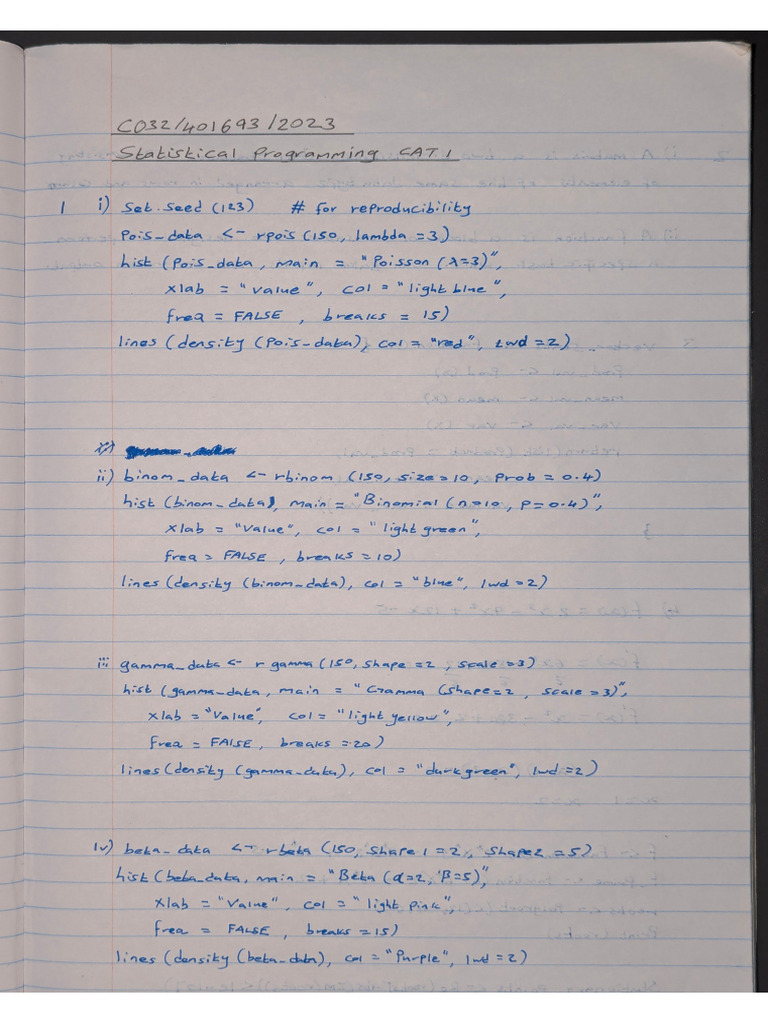 C032/401693/2023
Statistical Programming CAT 1
1 i) Set.seed (123) # for reproducibility
Pois_data <- rpois (150, lambda = 3)
hist (Pois_data, main = "Poisson (λ=3)",
xlab = "value", col = "light blue",
freq = FALSE, breaks = 15)
lines (density (Pois_data), col = "red", lwd = 2)
ii) binom_data <- rbinom (150, size = 10, Prob = 0.4)
hist (binom_data), main = "Binomial (n=10, P=0.4)",
xlab = "Value", col = "light green",
freq = FALSE, breaks = 10)
lines (density (binom_data), col = "blue", lwd = 2)
iii gamma_data <- rgamma (150, shape = 2, scale = 3)
hist (gamma_data, main = "Gamma (shape = 2, scale = 3)",
xlab = "Value", col = "light yellow",
freq = FALSE, breaks = 20)
lines (density (gamma_data), col = "darkgreen", lwd = 2)
iv) beta_data <- rbeta (150, Shape 1 = 2, Shape2 = 5)
hist (beta_data, main = "Beta (α=2, β=5)",
xlab = "Value", col = "light pink",
freq = FALSE, breaks = 15)
lines (density (beta_data), col = "Purple", lwd = 2)